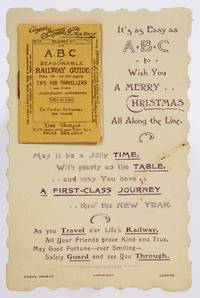 A.B.C
OF
SEASONABLE
RAILWAY GUIDE
TIPS FOR TRAVELLERS
It's as Easy as
A·B·C
- to -
Wish You
A MERRY . .
CHRISTMAS
All Along the Line.
May it be a Jolly TIME,
With plenty on the TABLE,
. . and may You have . .
A FIRST-CLASS JOURNEY
. . thro' the NEW YEAR.
As you Travel o'er Life's Railway,
All Your Friends prove Kind and True,
May Good Fortune—ever Smiling—
Safely Guard and see You Through.
COPYRIGHT
LONDON